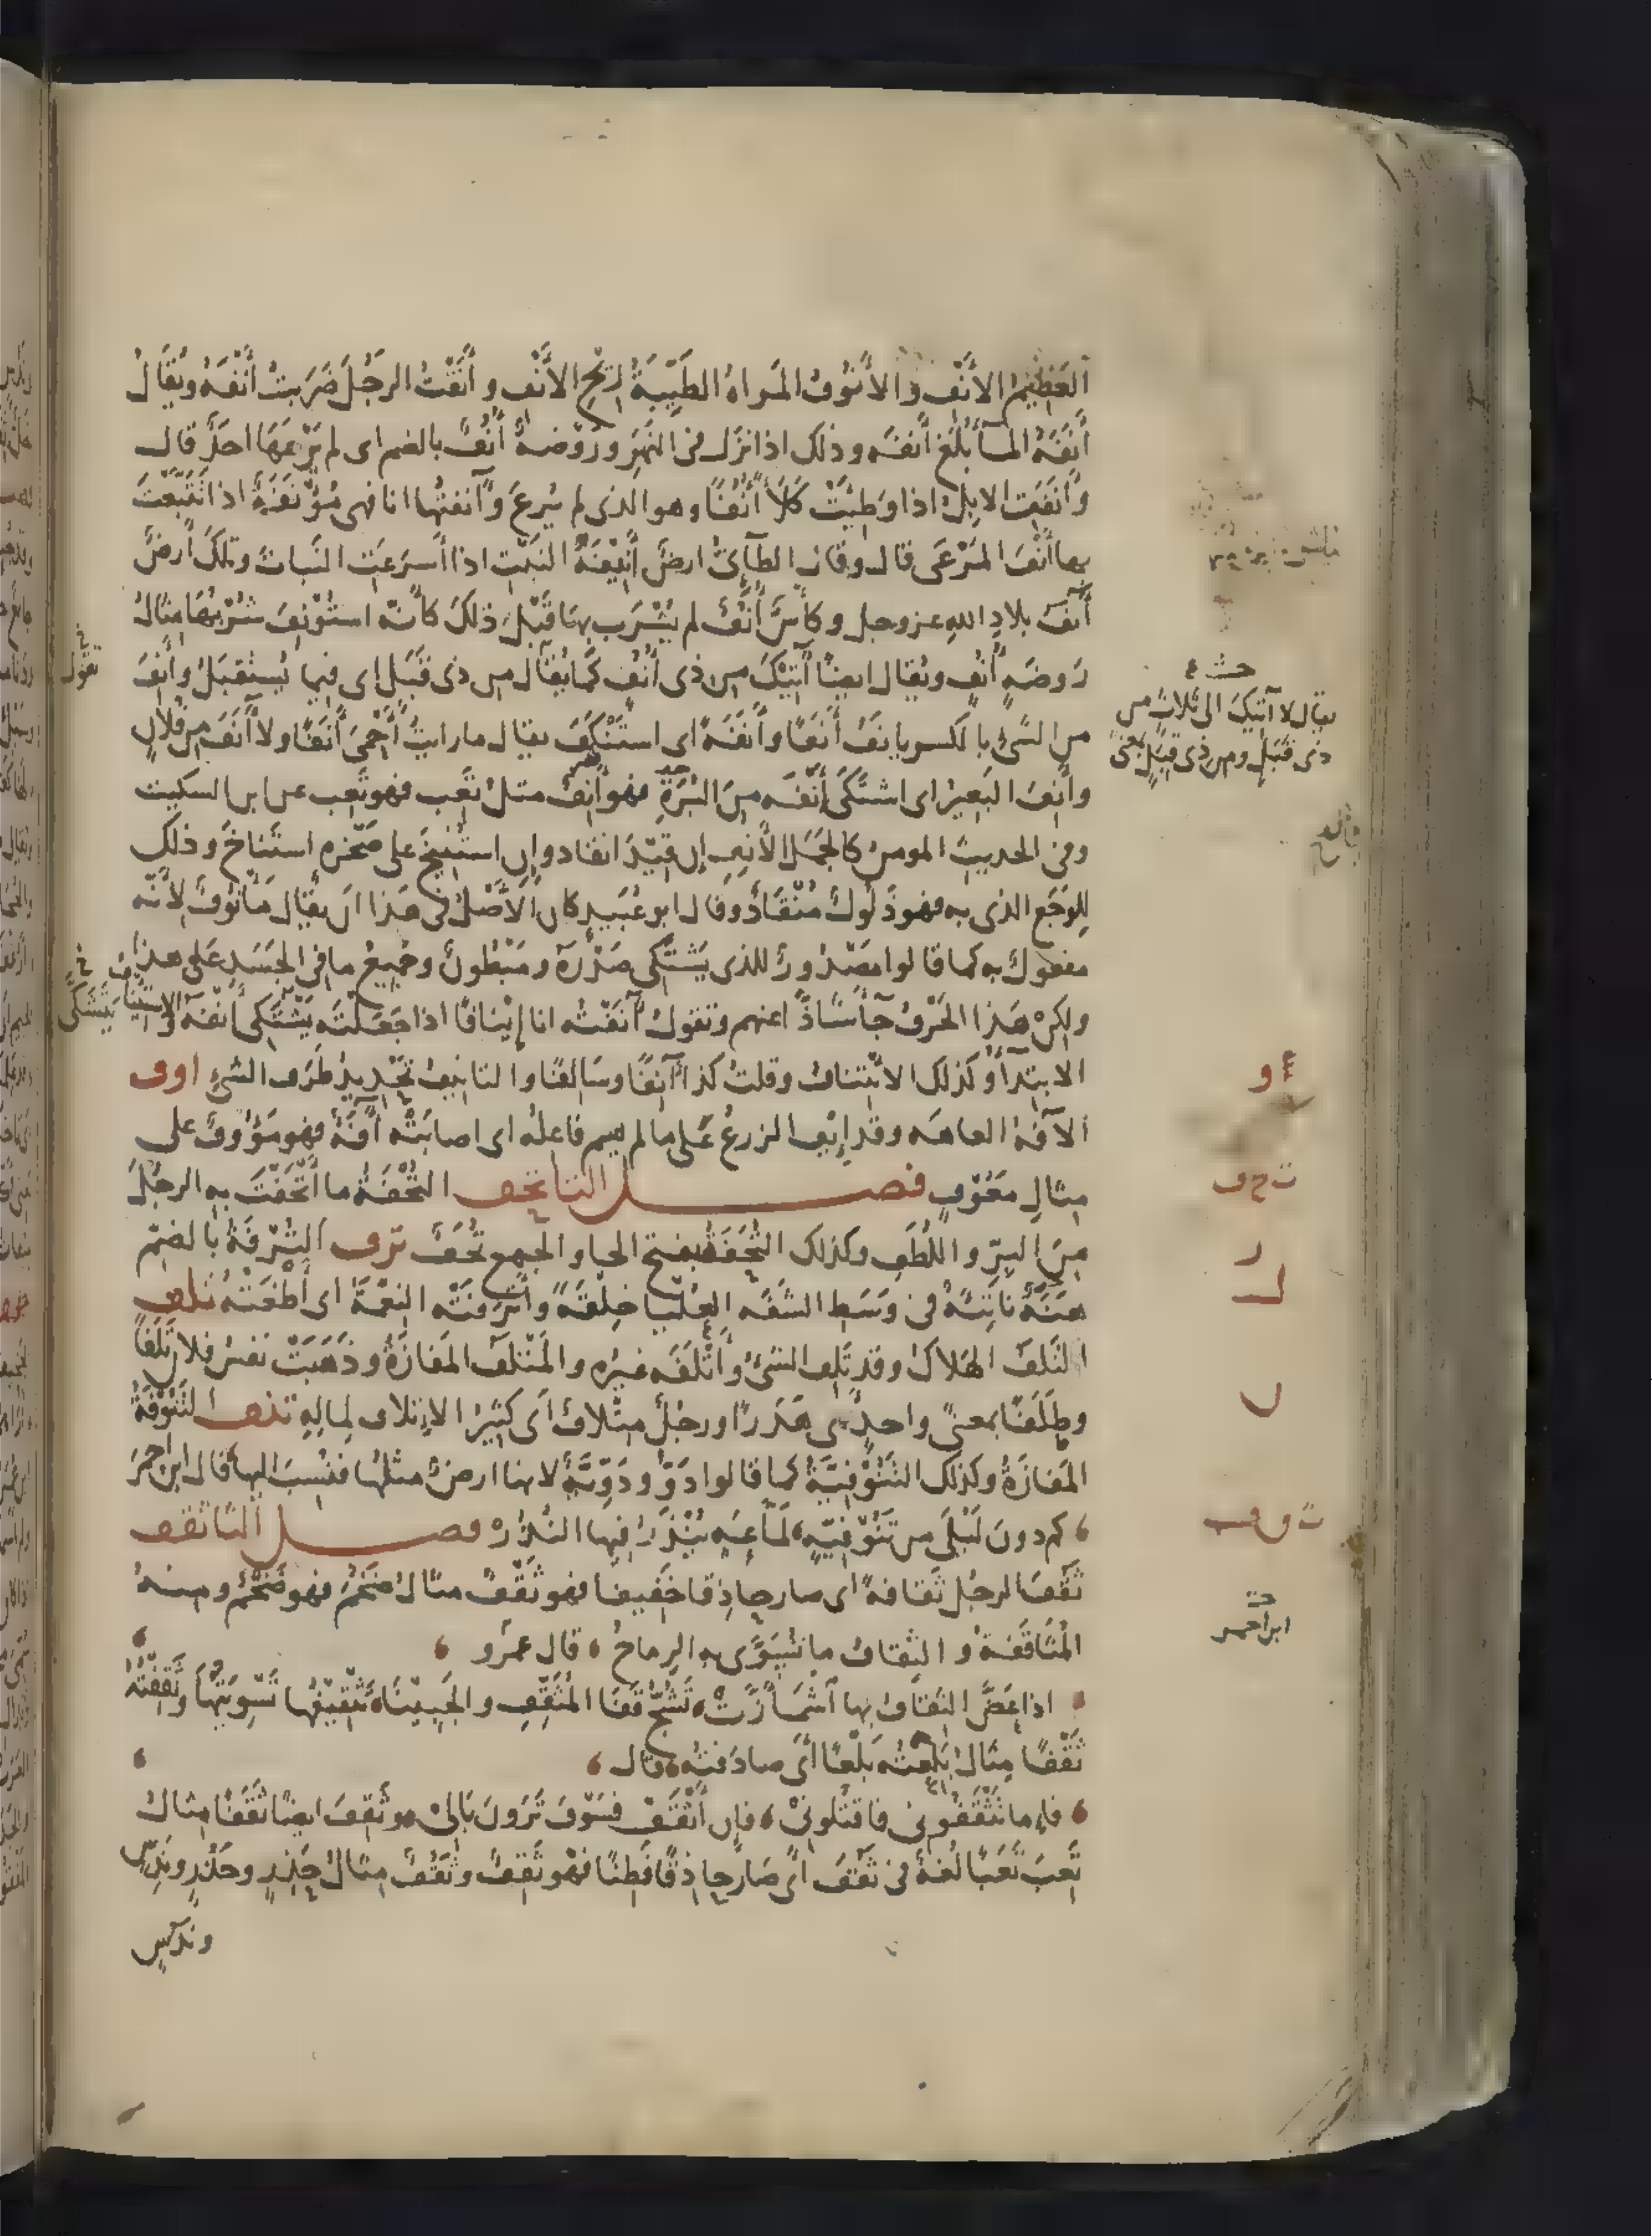 العَظِيمُ الأَنْفِ والأَنُوفُ المَراةُ الطَيِّبَةُ رِيْحِ الأَنْفِ وأَنَفْتُ الرَجُلَ ضَرَبتُ أَنْفَهُ ويُقَالُ
أَنَفَهُ المَآءُ بَلَغَ أَنفَه وذلك اذا نَزَل في النَهَرِ ورَوْضةٌ أُنُفٌ بالضم اى لم يَرْعَهَا احَدٌ قال
وأَنَفَتِ الابِلُ اذا وَطِيَتْ كَلَأً أُنُفًا وهو الذى لم يُرعَ وآنفتُها انا فهى مُؤْنَفَةٌ اذا تَتَبَّعْتَ
بها أَنْفَ المَرْعَى قال وقال الطآئىُّ ارضٌ أَنِيْفَةُ النَبْتِ اذا أَسرَعَتِ النَباتَ وتلكَ أَرضٌ
آنَفُ بلادِ اللهِ عز وجل وكأْسٌ أُنُفٌ لم يُشْرَب بهَا قَبْلَ ذلكَ كأَنّه استُؤْنِفَ شُرْبُهَا مِثَالُ
رَوضَةٍ أُنُفٍ ويُقال ايضًا آتِيْكَ من ذى أُنُفٍ كَمَا يُقَال من ذى قُبُلٍ اى فيما يُسْتَقبَلُ وأَنِفَ
تقول
من الشَئ بالكسر يانَفُ أَنَفًا وأَنَفَةً اى استَنْكَفَ يقال ما رايتُ أَحْمَىَ أَنَفًا ولا آنَفَ من فُلانٍ
وأَنِفَ البَعِيرُ اى اشتَكَى أَنْفَه مِنَ البُرَةِ فهو أَنِفٌ مثلُ تَعِبَ فهو تَعِب عن ابن السكيت
وفى الحديث المومنُ كالجَمَلِ الأَنِفِ إن قِيْدَ انقاد وإِن استُنِيخَ على صَخْرةٍ استَناخَ وذلك
لِلوَجَعِ الذى به فهو ذَلُولٌ مُنْقَادٌ وقال ابو عُبَيدٍ كان الأَصْلُ فى هَذا أن يُقالَ مَأْنُوفٌ لأَنّه
مفعولٌ به كما قالوا مَصْدُورٌ للذى يَشتَكِى صَدْرَهُ ومَبْطُونٌ وجَمِيعُ ما فى الجَسَدِ عَلى هذا
ولكِنْ هَذا الحَرْفُ جآءَ شَاذًّا عنهم وتقولُ آنَفْتُه انا إِيْنافًا اذا جَعَلْتَه يَشْتَكِى أَنْفَهُ والاستِينَافُ
يَتَشَكَّى
الابتِدآءُ وكَذلك الائْتِنافُ وقلتُ كذا آنِفًا وسَالِفًا والتانِيفُ تَحْدِيدُ طَرَفِ الشئِ اوف
الآفَةُ العاهَه وقد إِيْفَ الزرعُ عَلى ما لم يسم فاعلُه اى اصابَتْه آفَةٌ فهو مَؤُوفٌ على
مِثالِ مَعُوْفٍ فصل التا تحف التُحْفَةُ ما أَتْحَفْتَ به الرجُلَ
مِنَ البِرِّ واللُطَفِ وكذلك التُحَفَةُ بفتح الحا والجمع تُحَفٌ ترف التُرْفَةُ بالضمّ
هَنَةٌ ناتِئَةٌ فى وَسَطِ الشفَه العُلْيا خِلْقَةً وأَترَفَتْه النِعْمَةُ اى أَطْغَتْهُ تلف
التَلَفُ الهَلاكُ وقد تَلِفَ الشئُ وأَتْلَفَه غيرُه والمَتْلَفُ المَفازَةُ وذَهَبَتْ نَفسُ فلانٍ تَلَفًا
وطَلَفًا بمعنًى واحدٍ اى هَدَرًا ورجُلٌ مِتْلافٌ اى كَثِيرُ الإِتلافِ لِمالِهِ تنف التَنُوْفَةُ
المَفازَةُ وكذلك التَنُوْفِيَّةُ كما قالوا دَوٌّ ودَوِّيَّةٌ لانها ارضٌ مثلُها فنُسِبَ اليها قال ابن احمرَ
كم دونَ لَيْلَى من تَنُوْفِيّةٍ لَمّاعَةٍ يُنْذَرُ فيها النُذُرْ فصل الثا ثقف
ثَقُفَ الرجُل ثَقافةً اى صار حاذِقا خَفيفا فهو ثَقْفٌ مثالُ ضَخُمَ فهو ضَخْمٌ ومنهُ
المُثاقَفَةُ والثِقافُ ما تُسَوَّى به الرِماحُ قال عمرٌو
اذا عَضَّ الثِقافُ بها اشْمَأَزَّتْ تَشُجُّ قَفَا المُثَقِّفِ والجَبِينَا وتَثْقِيْفُها تَسْوِيَتُها وثَقِفْتُهُ
ثَقْفًا مِثالُ بَلِعتُه بَلْعًا أى صادَفتُه وقال
فإِما تَثْقَفُونى فاقتُلونىْ فإِن أَثْقَفْ فسَوْفَ تَرَونَ بَالىْ وثَقِفَ ايضًا ثَقَفًا مِثالُ
تَعِبَ تَعَبًا لُغةٌ فى ثَقُفَ اى صَار حاذِقًا فَطِنًا فهو ثَقِفٌ وثَقُفٌ مِثالُ حَذِرٍ وحَذُرٍ ونَدِسٍ
وندُسٍ
حشـ ع
يقال لا آتيك الى ثلاثٍ من
ذى قُبُلٍ ومن ذى قِبَلٍ يعنى
ء و
ت ح ف
ر
ل
ن
ث ق ف
ابن احمر